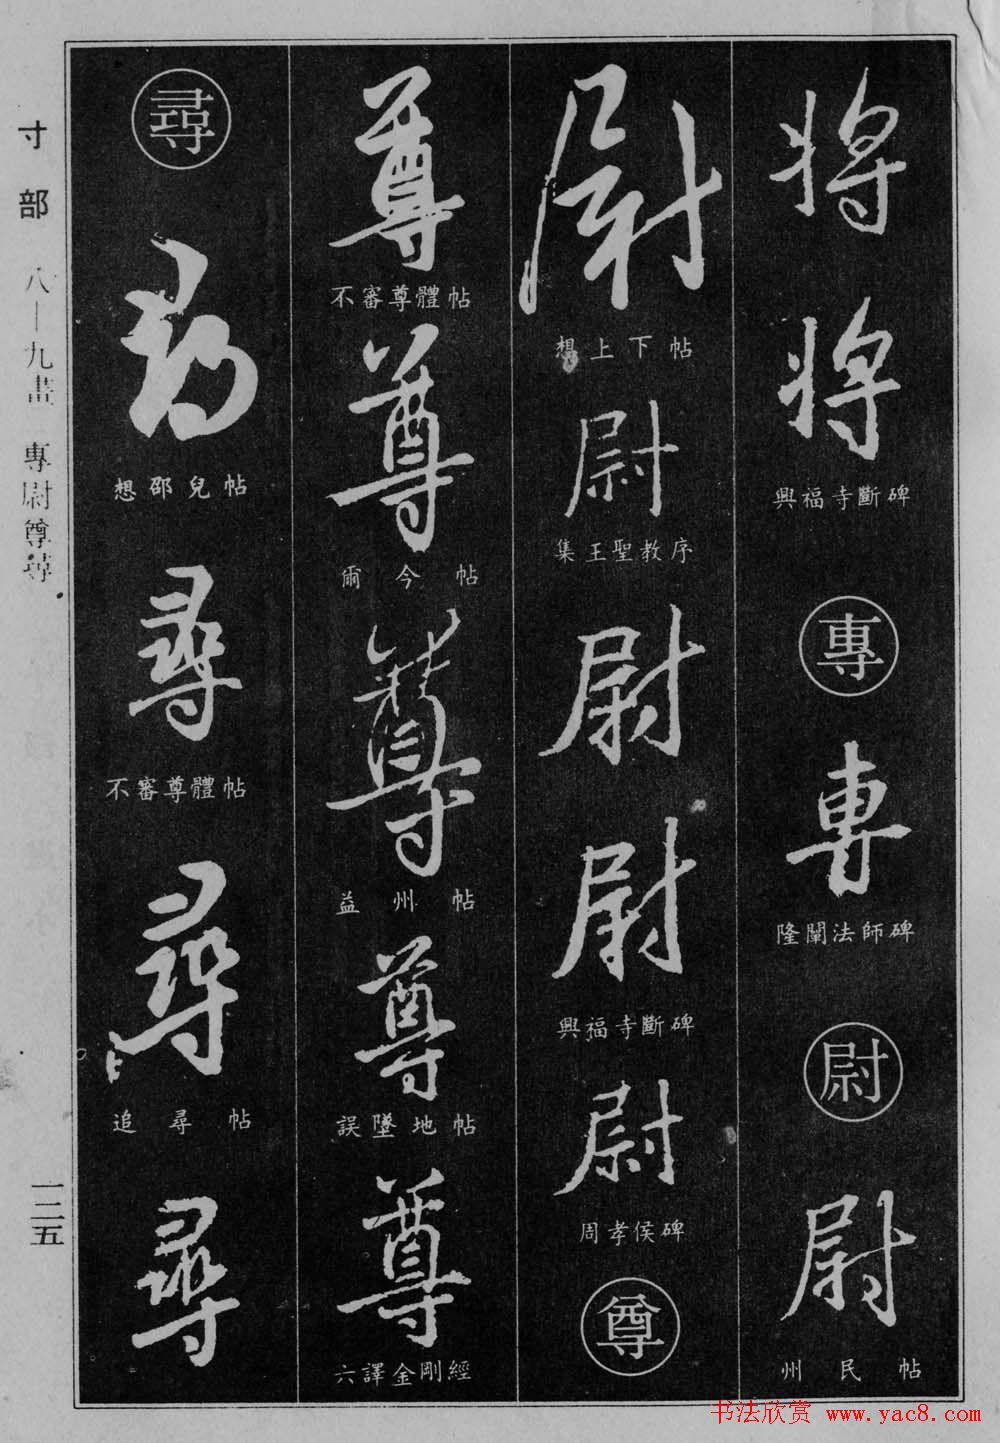 將
將
興福寺斷碑
專
專
隆闡法師碑
尉
尉
州民帖
尉
想上下帖
尉
集王聖教序
尉
尉
興福寺斷碑
尉
周孝侯碑
尊
尊
不審尊體帖
尊
爾今帖
尊
益州帖
尊
誤墜地帖
尊
六譯金剛經
尋
尋
想邵兒帖
尋
不審尊體帖
尋
追尋帖
尋
寸部 八—九畫 專尉尊尋
一二五
书法欣赏 www.yac8.com